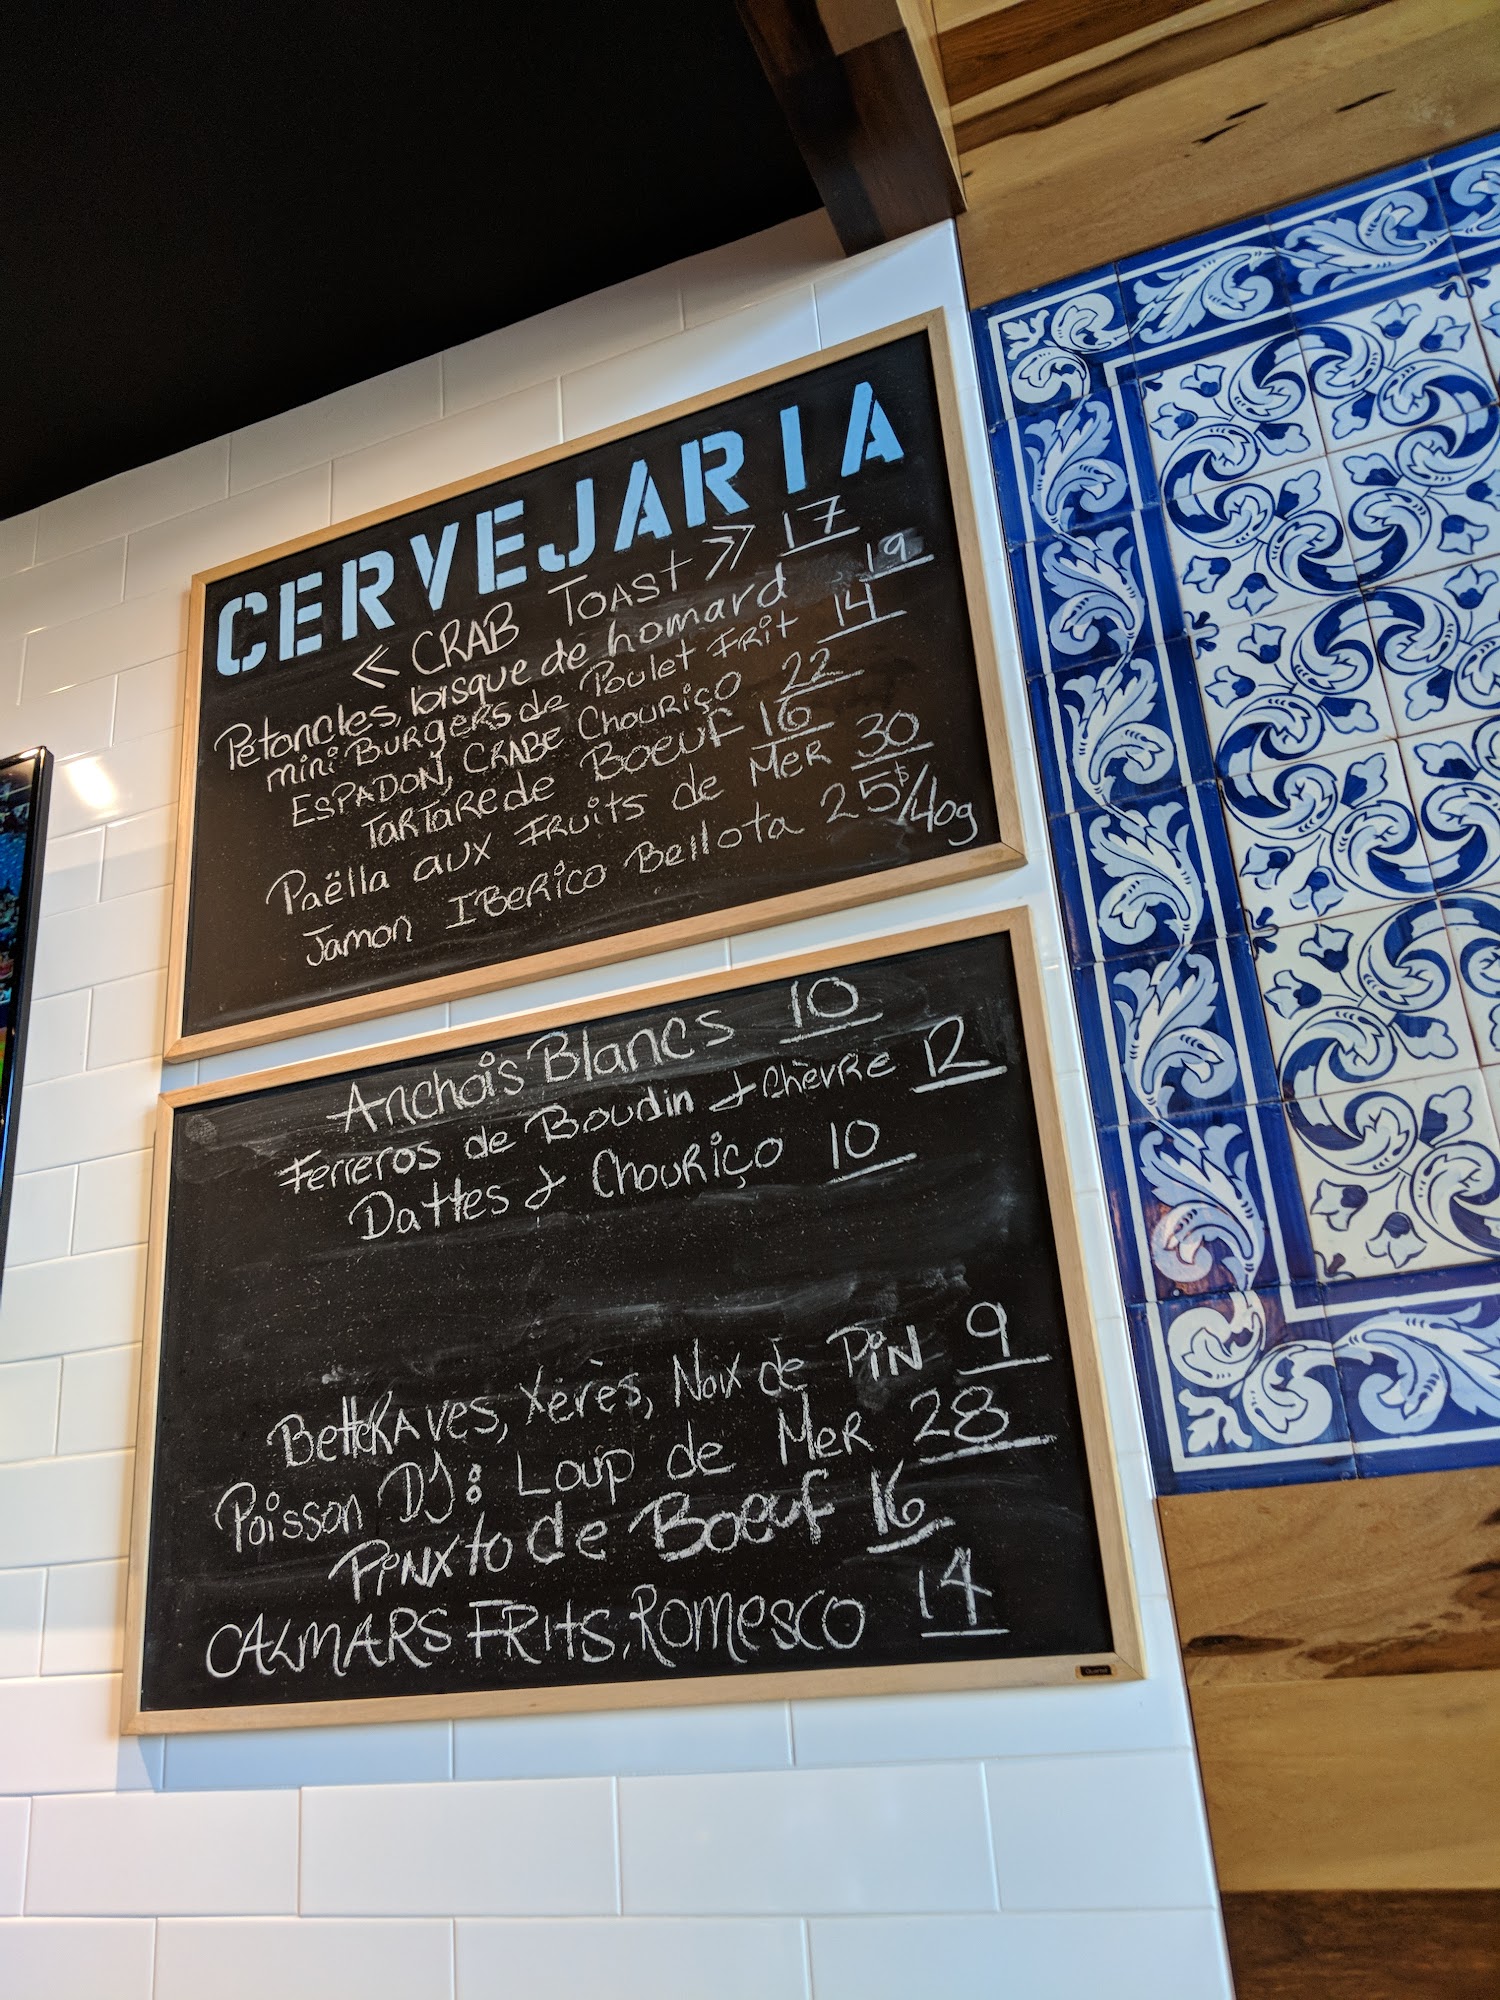 CERVEJARIA
<< CRAB TOAST >> 17
Pétoncles, bisque de homard 19
mini Burgers de Poulet Frit 14
ESPADON, CRABE CHOURIÇO 22
TARTARE de BOEUF 16
Paëlla aux Fruits de MER 30
Jamon IBERICO Bellota 25$/40g
Anchois Blancs 10
Ferreros de Boudin & Chèvre 12
Dattes & Chouriço 10
BetteRAVES, Xérès, Noix de PiN 9
Poisson DJ: Loup de MER 28
PiNxto de Boeuf 16
CALMARS FRITS, Romesco 14